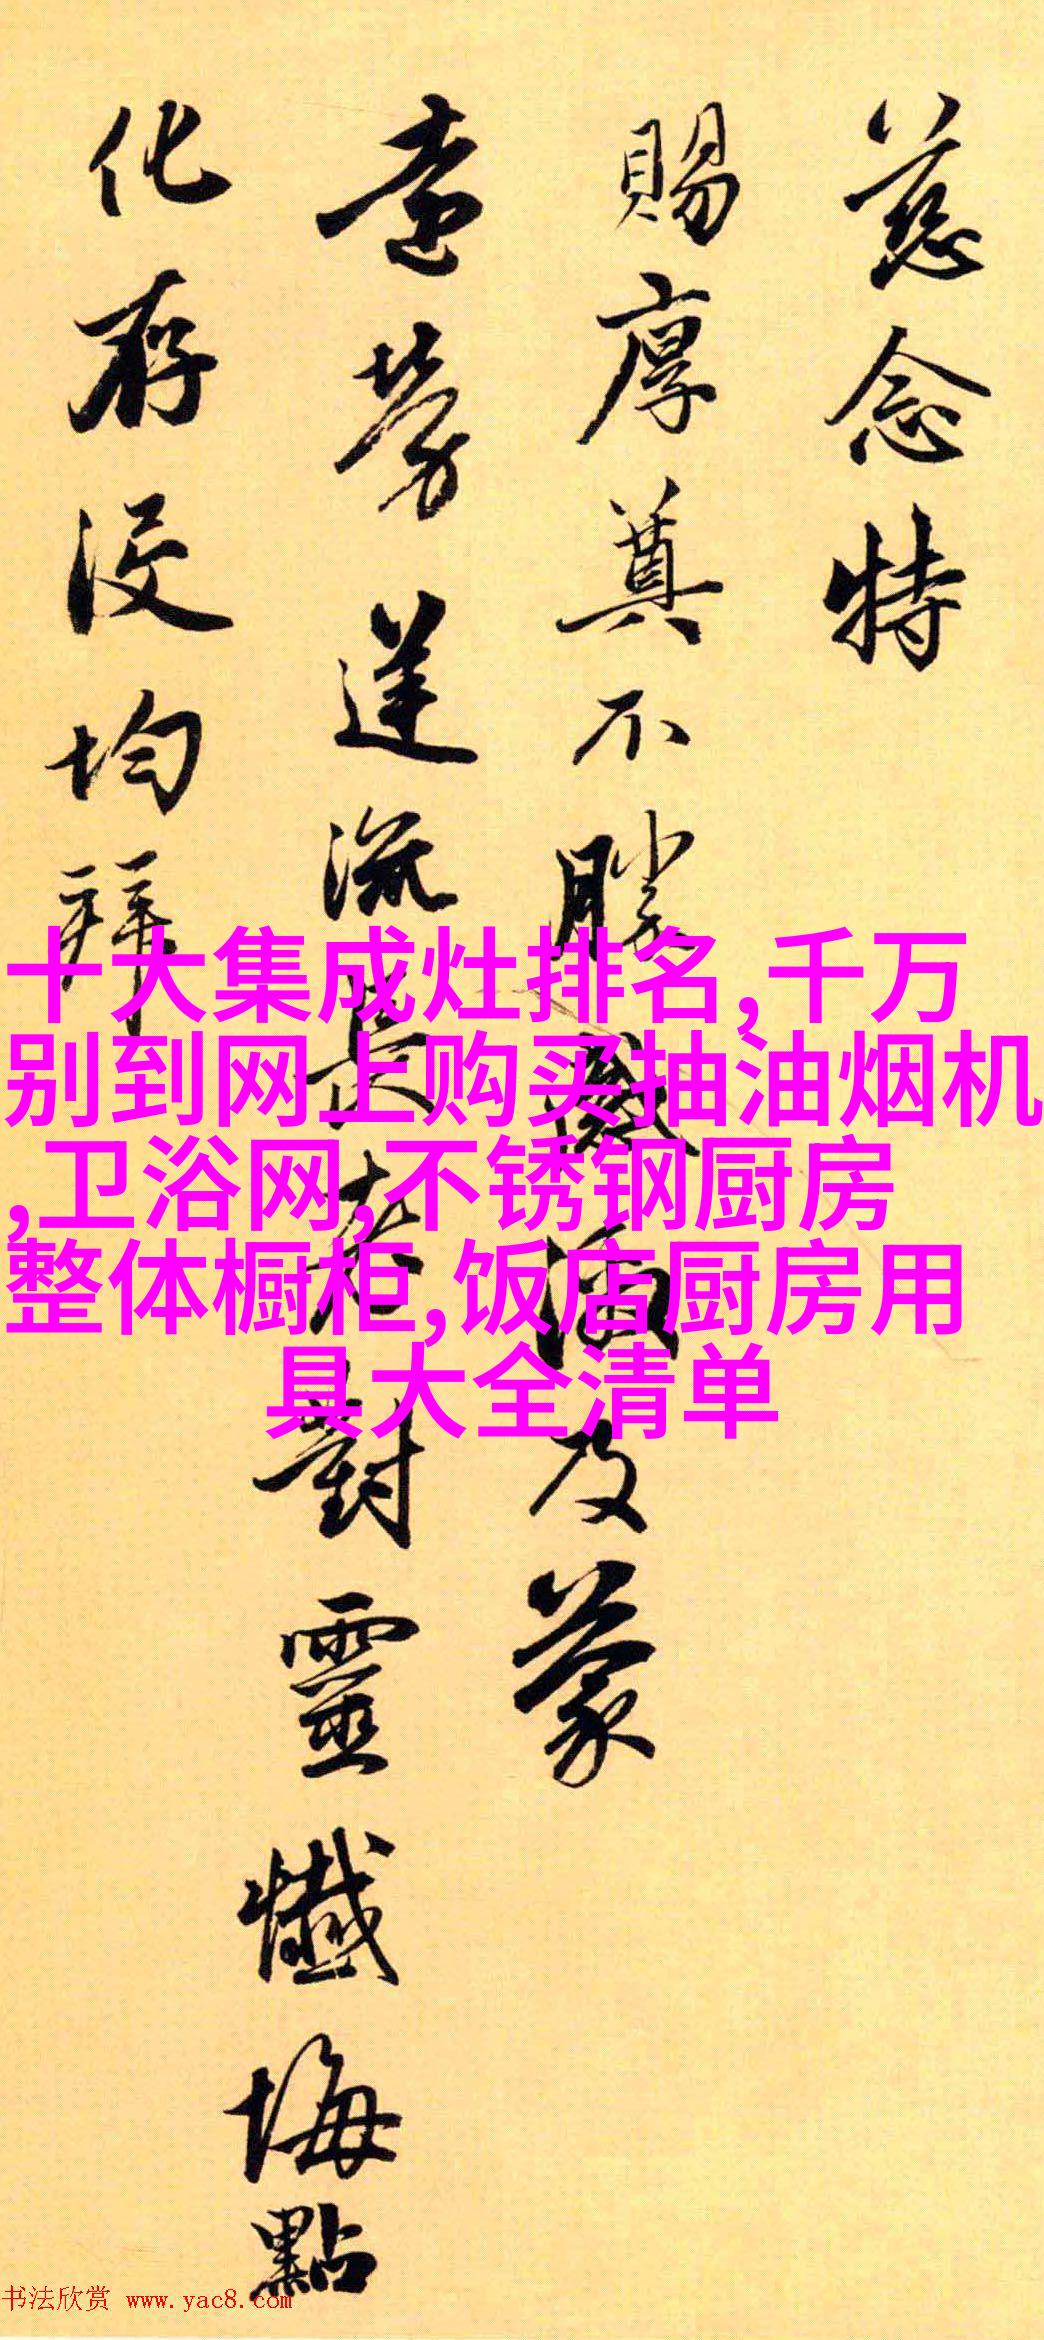 慈念特
賜厚奠不勝感激及蒙
遠勞送流長老對靈懺悔點
化存没均拜
十大集成灶排名,千万
别到网上购买抽油烟机
,卫浴网,不锈钢厨房
整体橱柜,饭店厨房用
具大全清单
书法欣赏 www.yac8.com